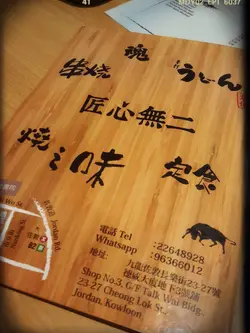 41
魂
串燒
うどん
匠心無二
燒之味
定食
電話 Tel :22648928
Whatsapp :96366012
地址: 九龍佐敦長樂街23-27號
德威大廈地下3號舖
Shop No.3, G/F Talk Wai Bldg.,
23-27 Cheong Lok St.,
Jordan, Kowloon.
Jordan Rd.